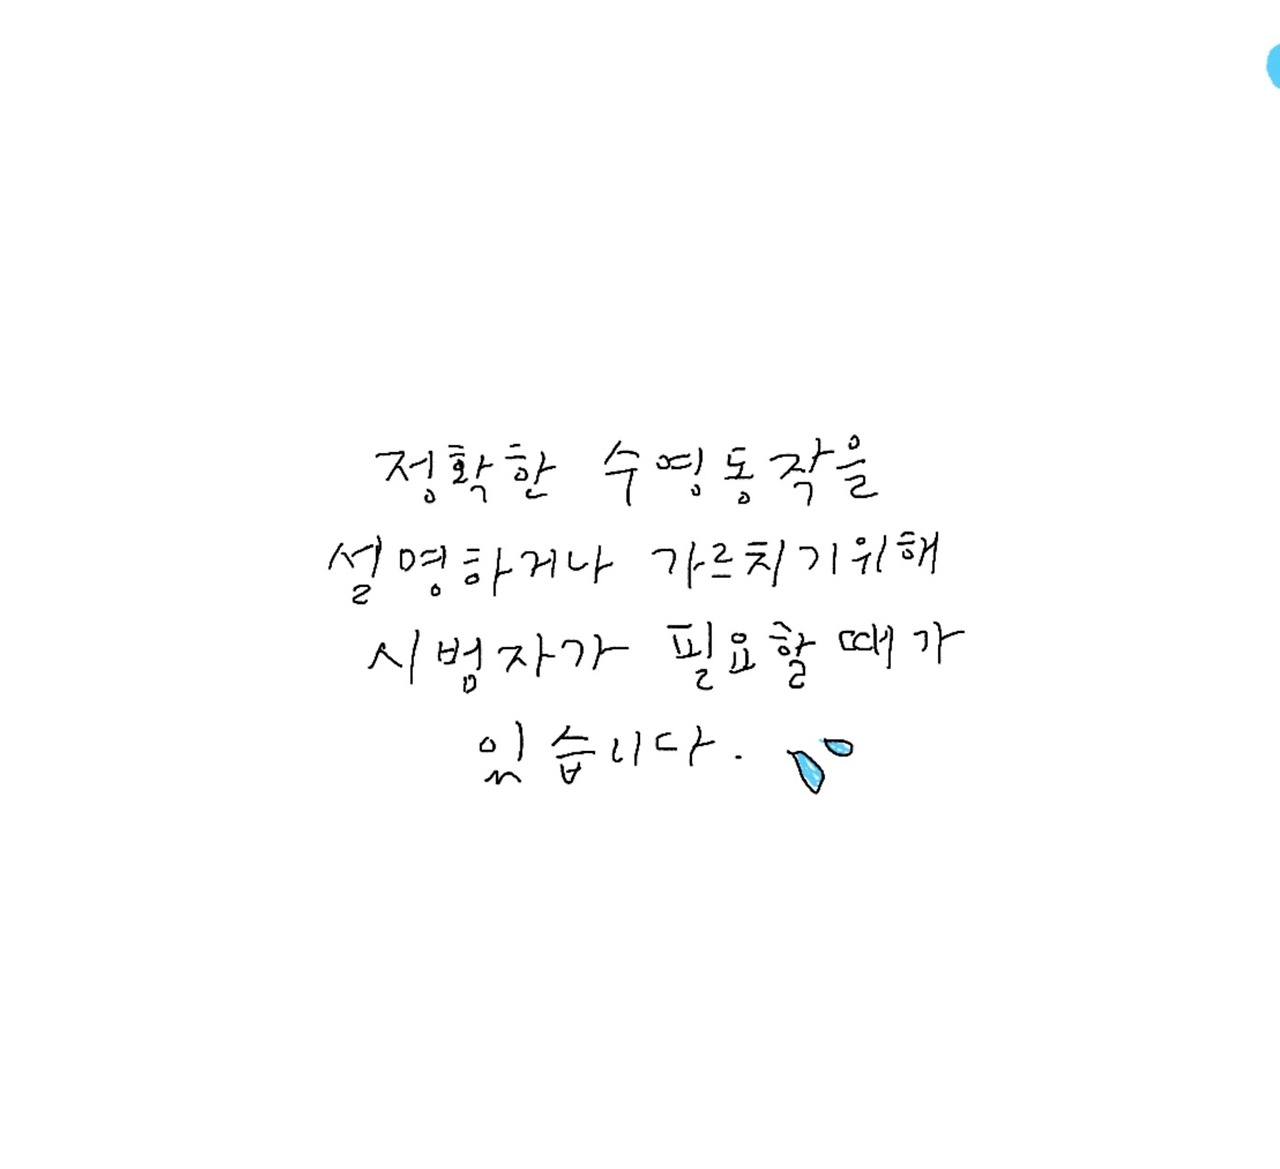 정확한 수영동작을
설명하거나 가르치기위해
시범자가 필요할때가
있습니다.